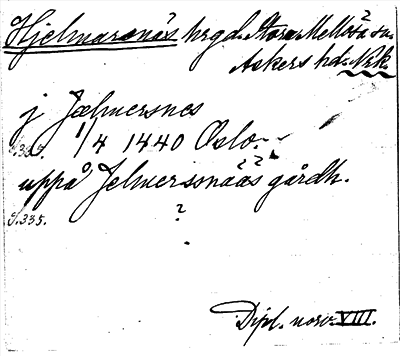 Hjelmarsnäs hrgd. Stora Mellösa sn.
Askers hd. Nrk.
j Jælmersnes
S.335. 1/4 1440 Oslo.
uppå Jelmersonääs gårdh.
S.335. ?
Dipl. norv. VIII.